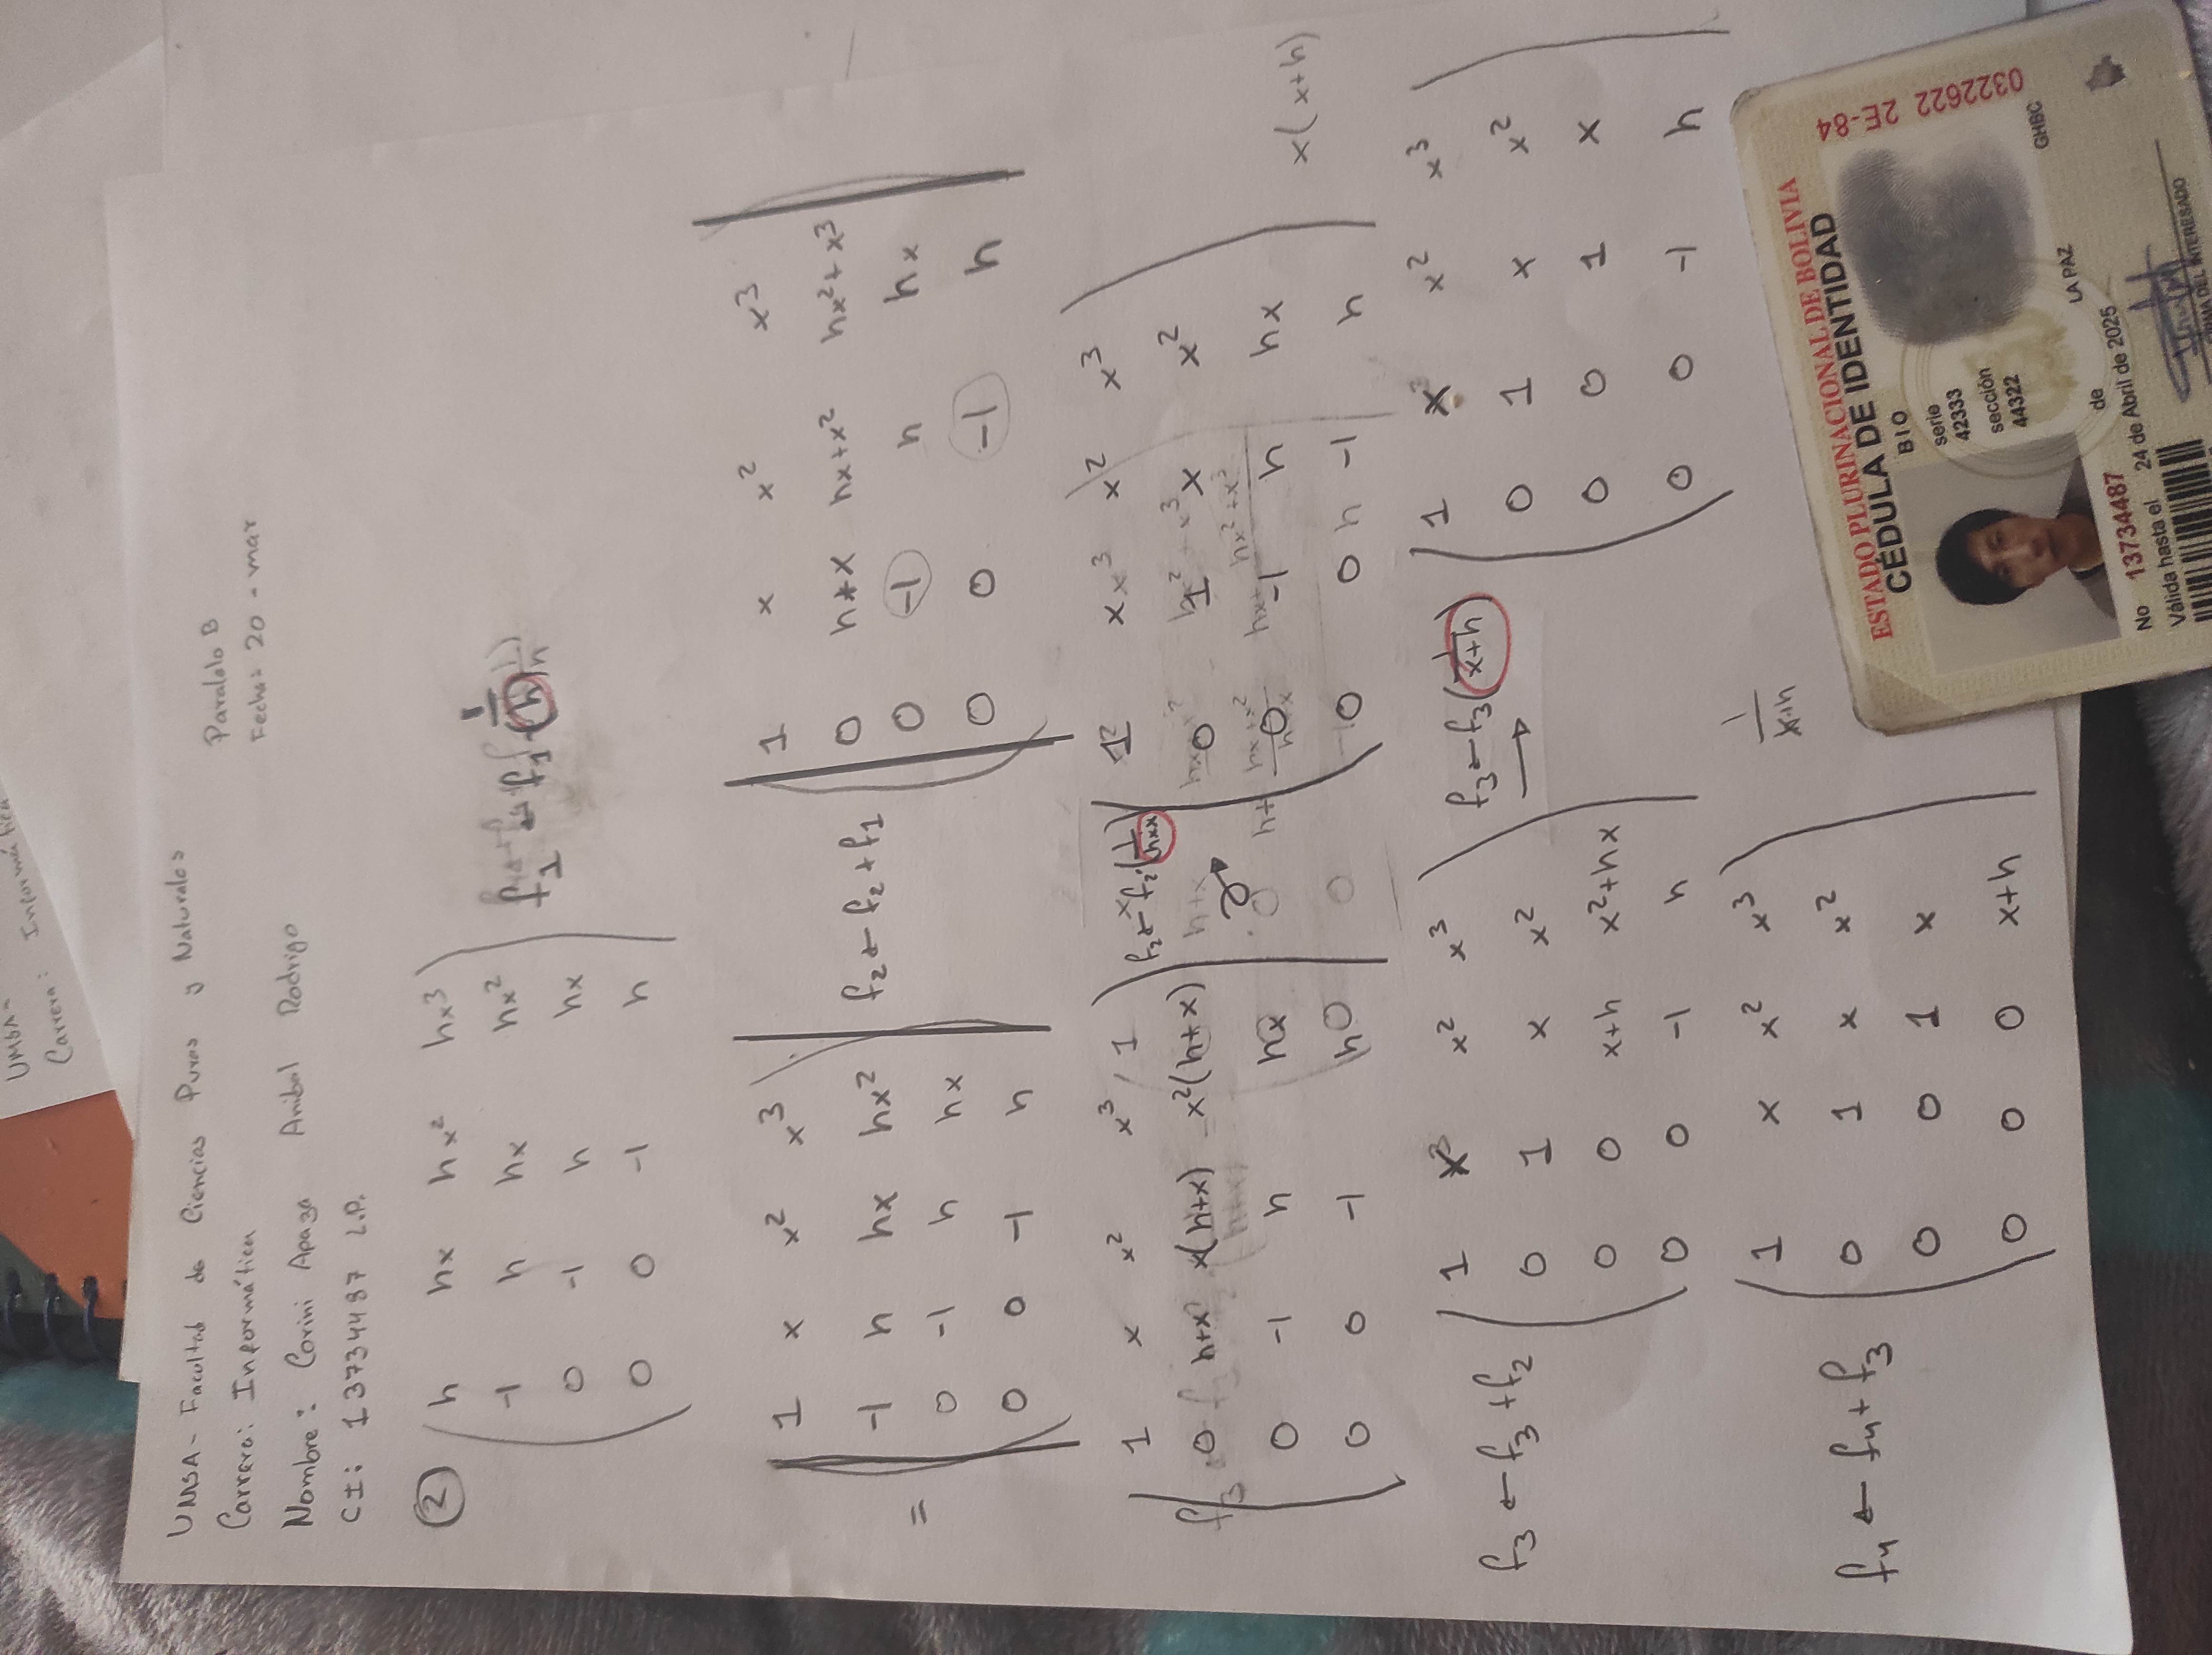 UMSA-
Carrera: Informática
UMSA - Facultad de Ciencias Puras y Naturales
Paralelo B
Carrera: Informática
Fecha: 20 - mar
Nombre: Corini Apaza Anibal Rodrigo
CI: 13734487 L.P.
2
h hx hx² hx³
-1 h hx hx²
0 -1 h hx
0 0 -1 h
f₁ ← f₁ (1/h)
=
1 x x² x³
-1 h hx hx²
0 -1 h hx
0 0 -1 h
f₂ ← f₂ + f₁
1 x x² x³
0 h+x hx+x² hx²+x³
0 -1 h hx
0 0 -1 h
1 x x² x³
0 h+x x(h+x) x²(h+x)
0 -1 h hx
0 0 -1 h
1 x x² x³
0 1 x x²
0 -1 h hx
0 0 -1 h
x(x+h)
f₃ ← f₃ + f₂
1 x x² x³
0 1 x x²
0 0 x+h x²+hx
0 0 -1 h
f₃ ← f₃ (1/(x+h))
1 x x² x³
0 1 x x²
0 0 1 x
0 0 -1 h
f₄ ← f₄ + f₃
1 x x² x³
0 1 x x²
0 0 1 x
0 0 0 x+h
1/(x+h)
ESTADO PLURINACIONAL DE BOLIVIA
CÉDULA DE IDENTIDAD
BIO
serie
42333
sección
44322
0322622 2E-84
GHBC
LA PAZ
de
No 13734487
Válida hasta el 24 de Abril de 2025
FIRMA DEL INTERESADO